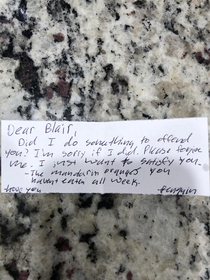 Dear Blair,
Did I do something to offend
you? I'm sorry if I did. Please forgive
me. I just want to satisfy you.
-The mandarin oranges you
haven't eaten all week.